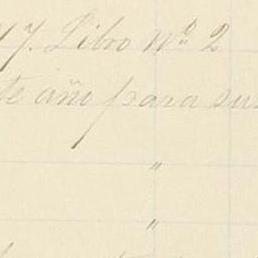 7. Libro Nº 2
te año para su
"
"